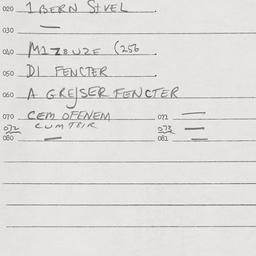 020 1 BERN STVEL
030 —
040 M1ZBUZE (256
050 DI FENCTER
060 A GREJSER FENCTER
070 CEM OFENEM 071 —
072 CUMTSIR 073 —
080 — 081 —